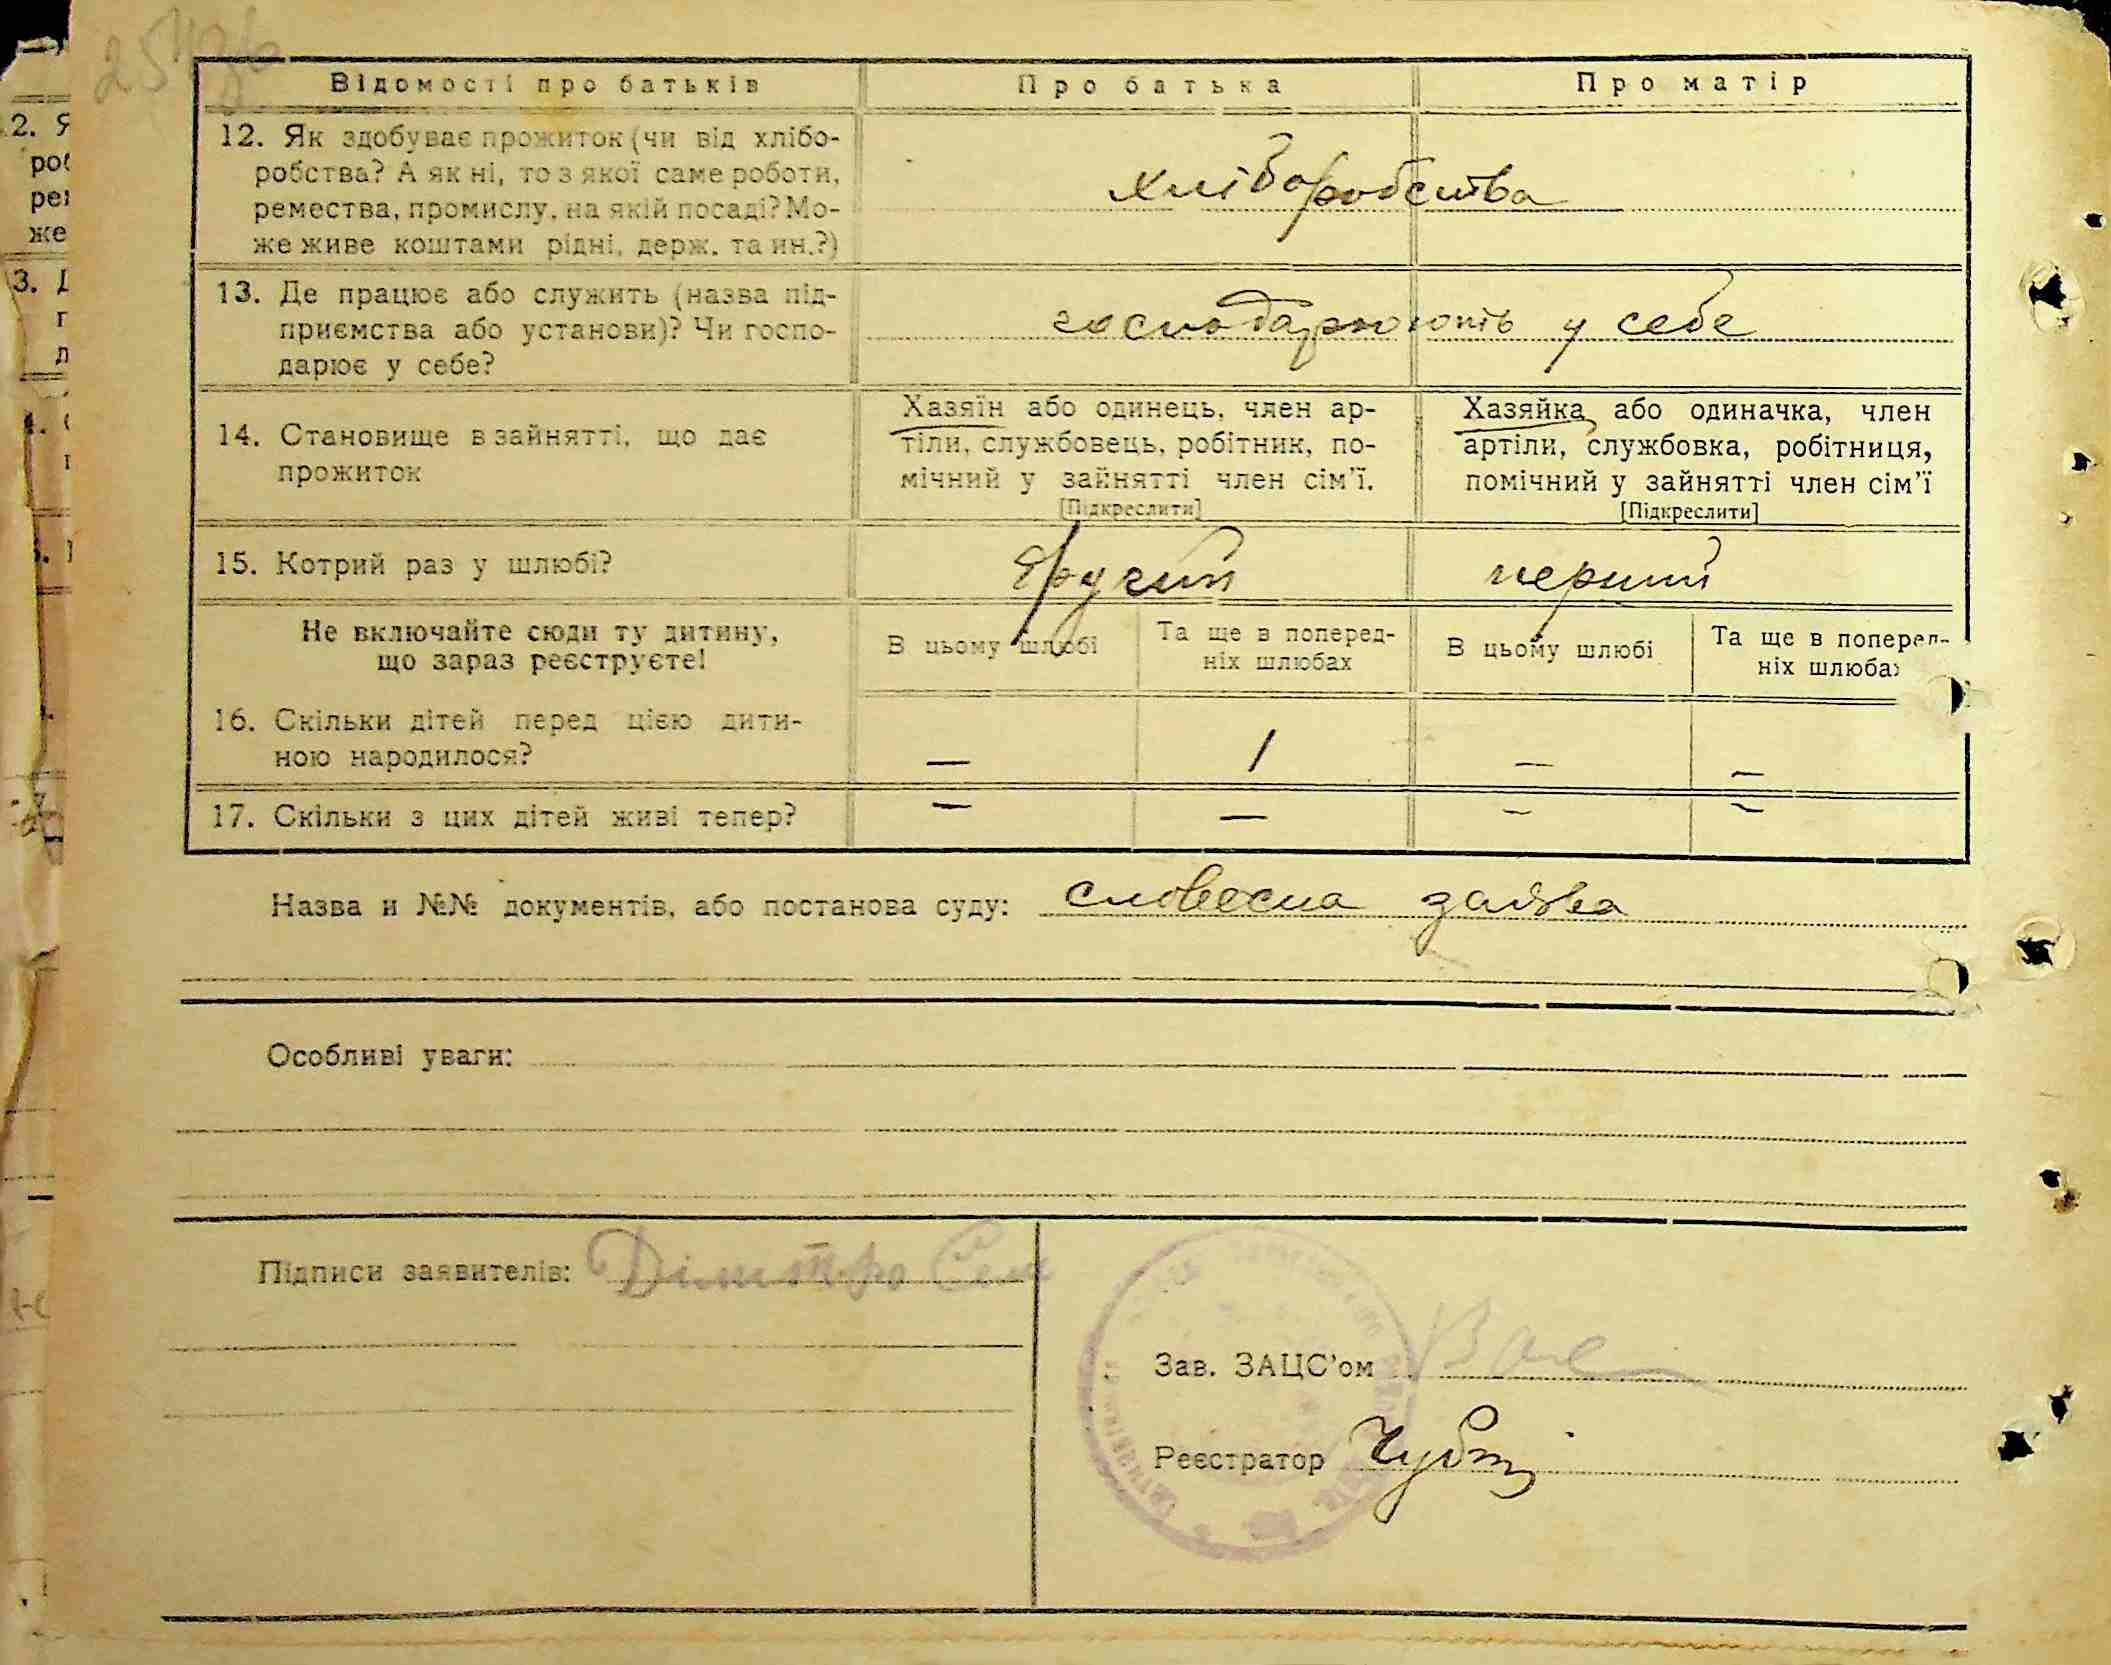 Відомості про батьків
Про батька
Про матір
12. Як здобуває прожиток (чи від хлібо-
робства? А як ні, то з якої саме роботи,
ремества, промислу, на якій посаді? Мо-
же живе коштами рідні, держ. та ин.?)
хліборобства
13. Де працює або служить (назва під-
приємства або установи)? Чи госпо-
дарює у себе?
господарюють у себе
14. Становище в зайнятті, що дає
прожиток
Хазяїн або одинець, член ар-
тіли, службовець, робітник, по-
мічний у зайнятті член сім'ї.
[Підкреслити]
Хазяйка або одиначка, член
артіли, службовка, робітниця,
помічний у зайнятті член сім'ї
[Підкреслити]
15. Котрий раз у шлюбі?
другий
перший
Не включайте сюди ту дитину,
що зараз реєструєте!
В цьому шлюбі
Та ще в поперед-
ніх шлюбах
В цьому шлюбі
Та ще в поперед-
ніх шлюбах
16. Скільки дітей перед цією дити-
ною народилося?
— 1 — —
17. Скільки з цих дітей живі тепер?
— — — —
Назва и №№ документів, або постанова суду: словесна заява
Особливі уваги:
Підписи заявителів: Дімитро
Зав. ЗАЦС'ом
Реєстратор